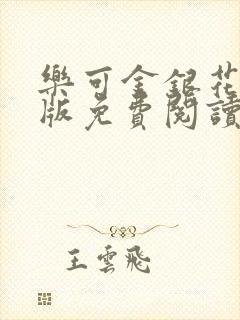 樂可金銀花
版免費閱讀
王雲飛